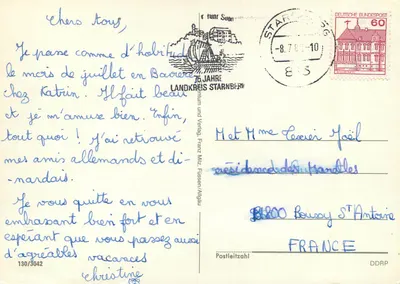 Chers tous,
Je passe comme d'habitude
le mois de juillet en Baviere
chez Katrin. Il fait beau
et je m'amuse bien. Enfin,
tout quoi ! J'ai retrouvé
mes amis allemands et di-
nardais.
Je vous quitte en vous
embrassant bien fort et en
espérant que vous passez aussi
d'agréables vacances
Christine
130/3042
75 JAHRE
LANDKREIS STARNBERG
STARNBERG
-8.7
-10
DEUTSCHE BUNDESPOST
60
M et Mme Texier Joël
résidence des
Boussy St Antoine
FRANCE
Postleitzahl
DDRP